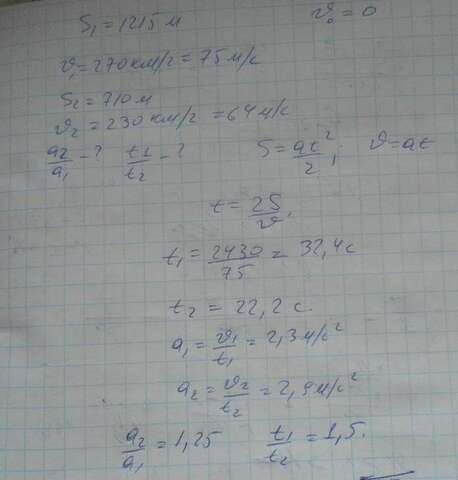 S₁ = 1215 м
υ₀ = 0
υ₁ = 270 км/г = 75 м/с
S₂ = 710 м
υ₂ = 230 км/г = 64 м/с
a₂/a₁ - ? t₁/t₂ - ? S = at²/2; υ = at
t = 2S/υ.
t₁ = 2430/75 = 32,4 с
t₂ = 22,2 с.
a₁ = υ₁/t₁ = 2,3 м/с²
a₂ = υ₂/t₂ = 2,9 м/с²
a₂/a₁ = 1,25 t₁/t₂ = 1,5.